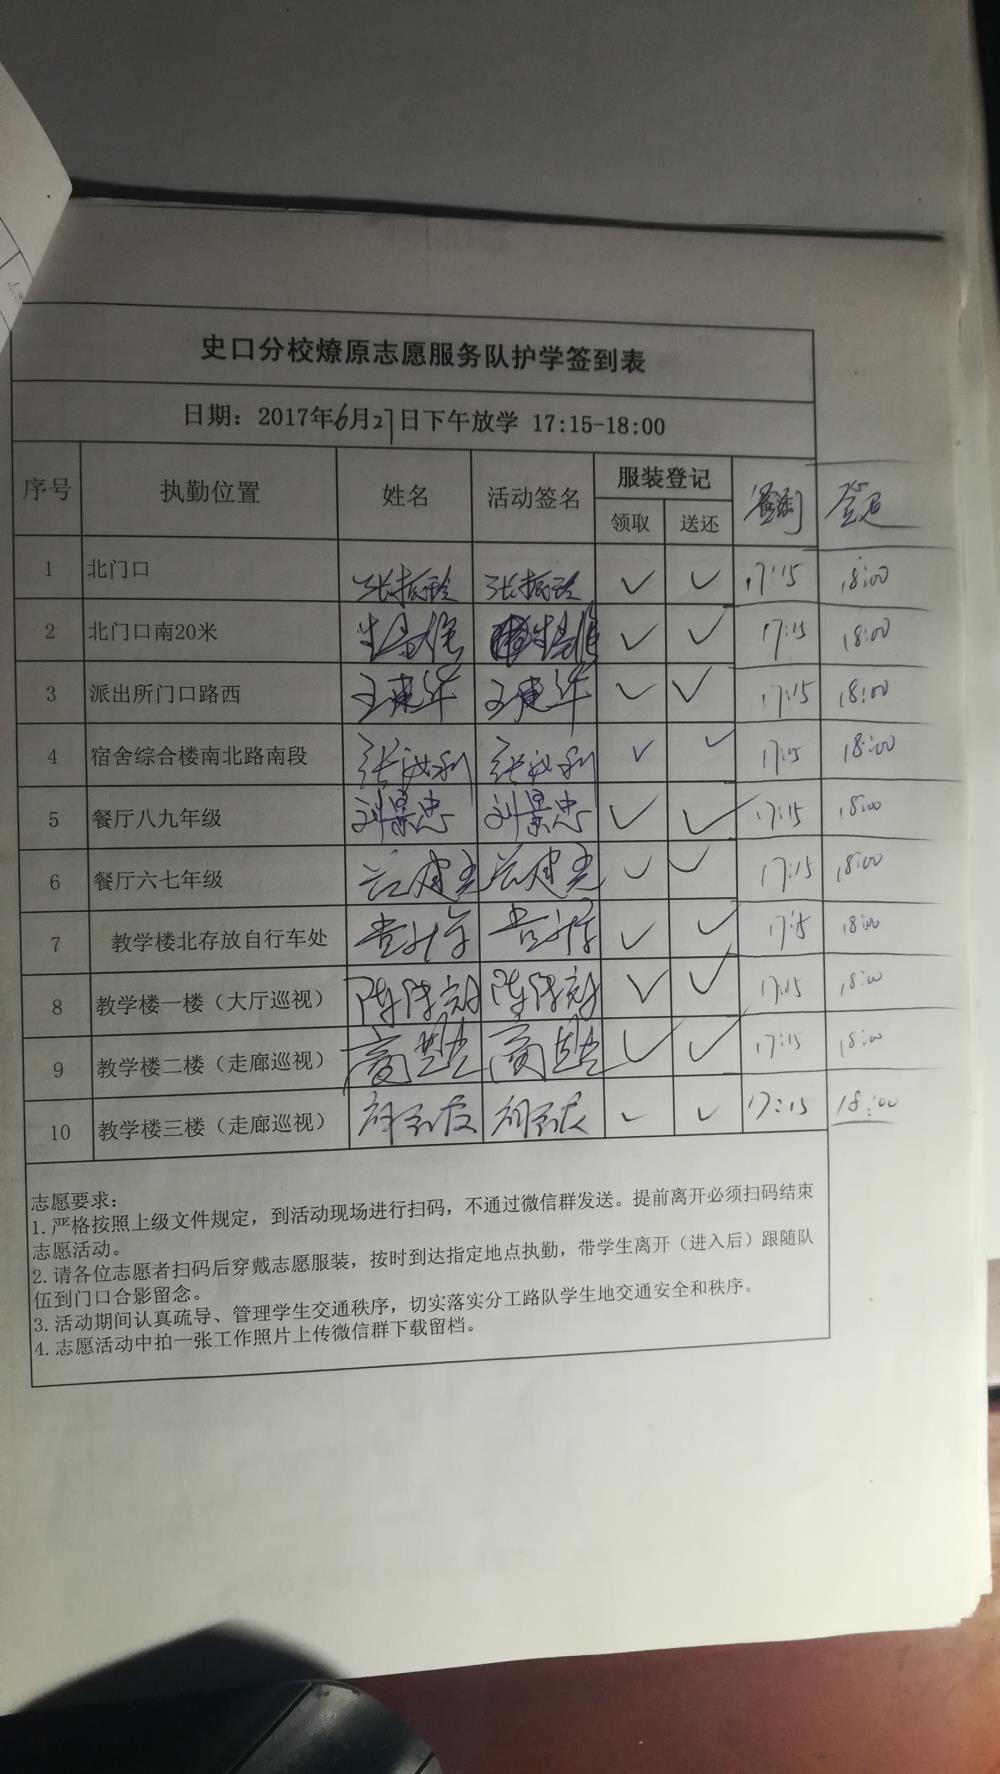 史口分校燎原志愿服务队护学签到表
日期：2017年6月27日下午放学 17:15-18:00
序号 执勤位置 姓名 活动签名 服装登记 签到 签退
领取 送还
1 北门口 张振玲 张振玲 ✓ ✓ 17:15 18:00
2 北门口南20米 ✓ ✓ 17:15 18:00
3 派出所门口路西 王建华 王建华 ✓ ✓ 17:15 18:00
4 宿舍综合楼南北路南段 ✓ ✓ 17:15 18:00
5 餐厅八九年级 刘景忠 刘景忠 ✓ ✓ 17:15 18:00
6 餐厅六七年级 ✓ ✓ 17:15 18:00
7 教学楼北存放自行车处 ✓ ✓ 17:15 18:00
8 教学楼一楼（大厅巡视） ✓ ✓ 17:15 18:00
9 教学楼二楼（走廊巡视） ✓ ✓ 17:15 18:00
10 教学楼三楼（走廊巡视） ✓ ✓ 17:15 18:00
志愿要求：
1. 严格按照上级文件规定，到活动现场进行扫码，不通过微信群发送。提前离开必须扫码结束
志愿活动。
2. 请各位志愿者扫码后穿戴志愿服装，按时到达指定地点执勤，带学生离开（进入后）跟随队
伍到门口合影留念。
3. 活动期间认真疏导、管理学生交通秩序，切实落实分工路队学生地交通安全和秩序。
4. 志愿活动中拍一张工作照片上传微信群下载留档。